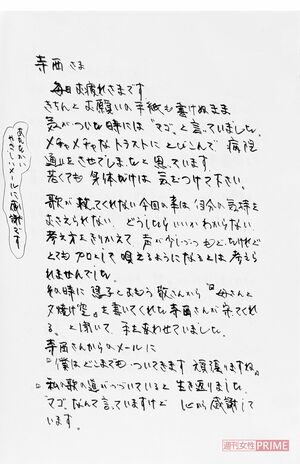 寺西さま
毎日お疲れさまです
きちんとお願いの手紙も書けぬまま
気がついた時には「マゴ」と言っていました。
メチャメチャなトラストにとびこんで病院
通いをさせてしまったなと思っています
若くても身体だけは気をつけて下さい。
歌が救ってくれない今回の事は自分の気持を
おさえられない、どうしたらいいかわからない
考え方をきりかえて声が少しづつもどったけれど
とてもプロとして唄えるようになるとは考えら
れませんでした。
その時に息子とおもう敬さんから『母さんと
夕焼け空』を書いてくれた寺西さんが来てくれ
る、と聞いて、手を合わせていました。
寺西さんからのメールに
「僕はどこまでもついてきます 頑張りますね。」
私の歌の道がつづいていると生き返りました。
マゴなんて言っていますけど 心から感謝して
います。
あたたかい
やさしいメールに感謝です
週刊女性PRIME